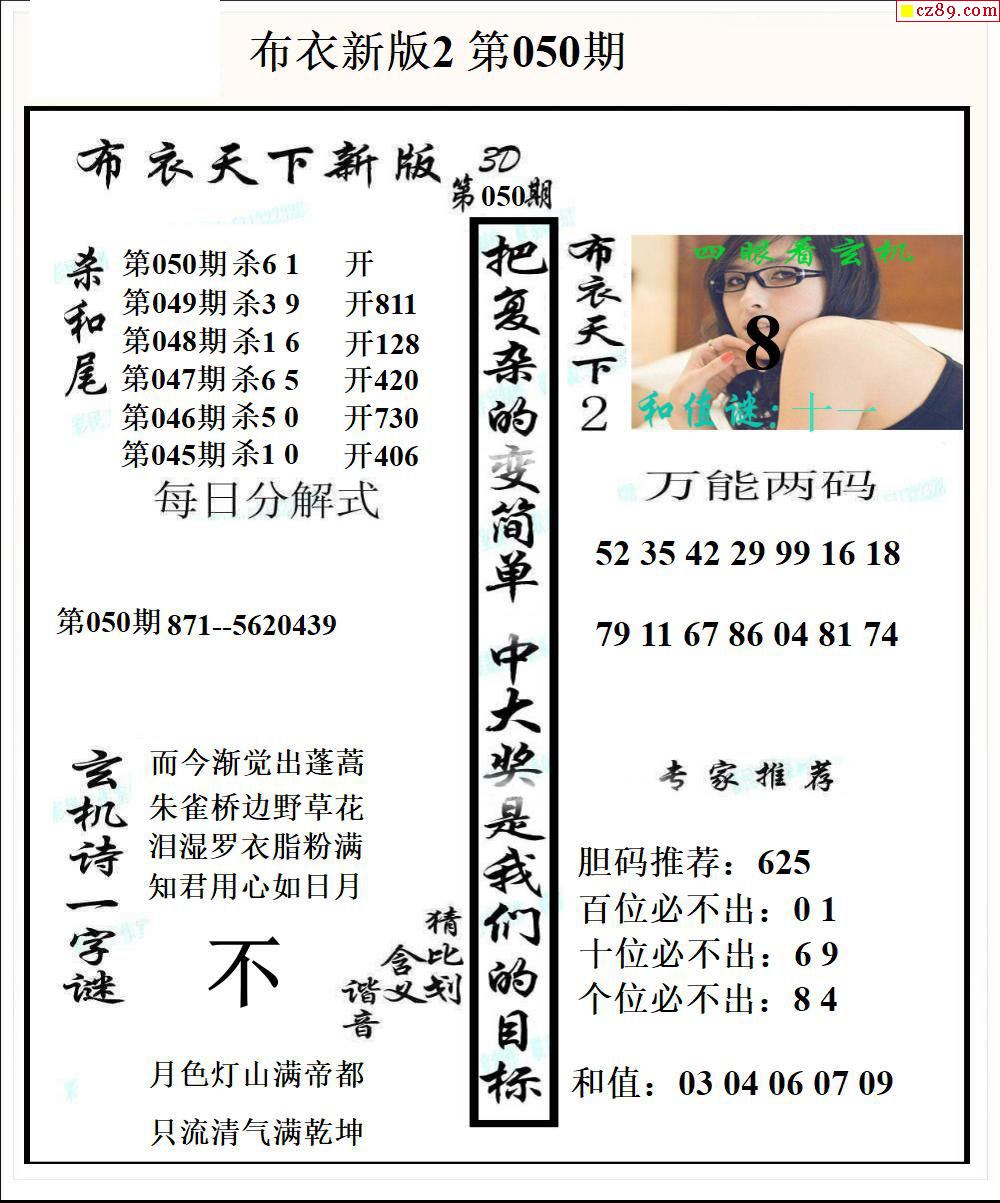 cz89.com
布衣新版2 第050期
布衣天下新版 3D
第050期
杀和尾
第050期 杀6 1 开
第049期 杀3 9 开811
第048期 杀1 6 开128
第047期 杀6 5 开420
第046期 杀5 0 开730
第045期 杀1 0 开406
每日分解式
第050期 871--5620439
玄机诗一字谜
而今渐觉出蓬蒿
朱雀桥边野草花
泪湿罗衣脂粉满
知君用心如日月
不
猜比划
含义
谐音
月色灯山满帝都
只流清气满乾坤
把复杂的变简单 中大奖是我们的目标
布衣天下2
四眼看玄机
8
和值谜:十一
万能两码
52 35 42 29 99 16 18
79 11 67 86 04 81 74
专家推荐
胆码推荐：625
百位必不出：0 1
十位必不出：6 9
个位必不出：8 4
和值：03 04 06 07 09